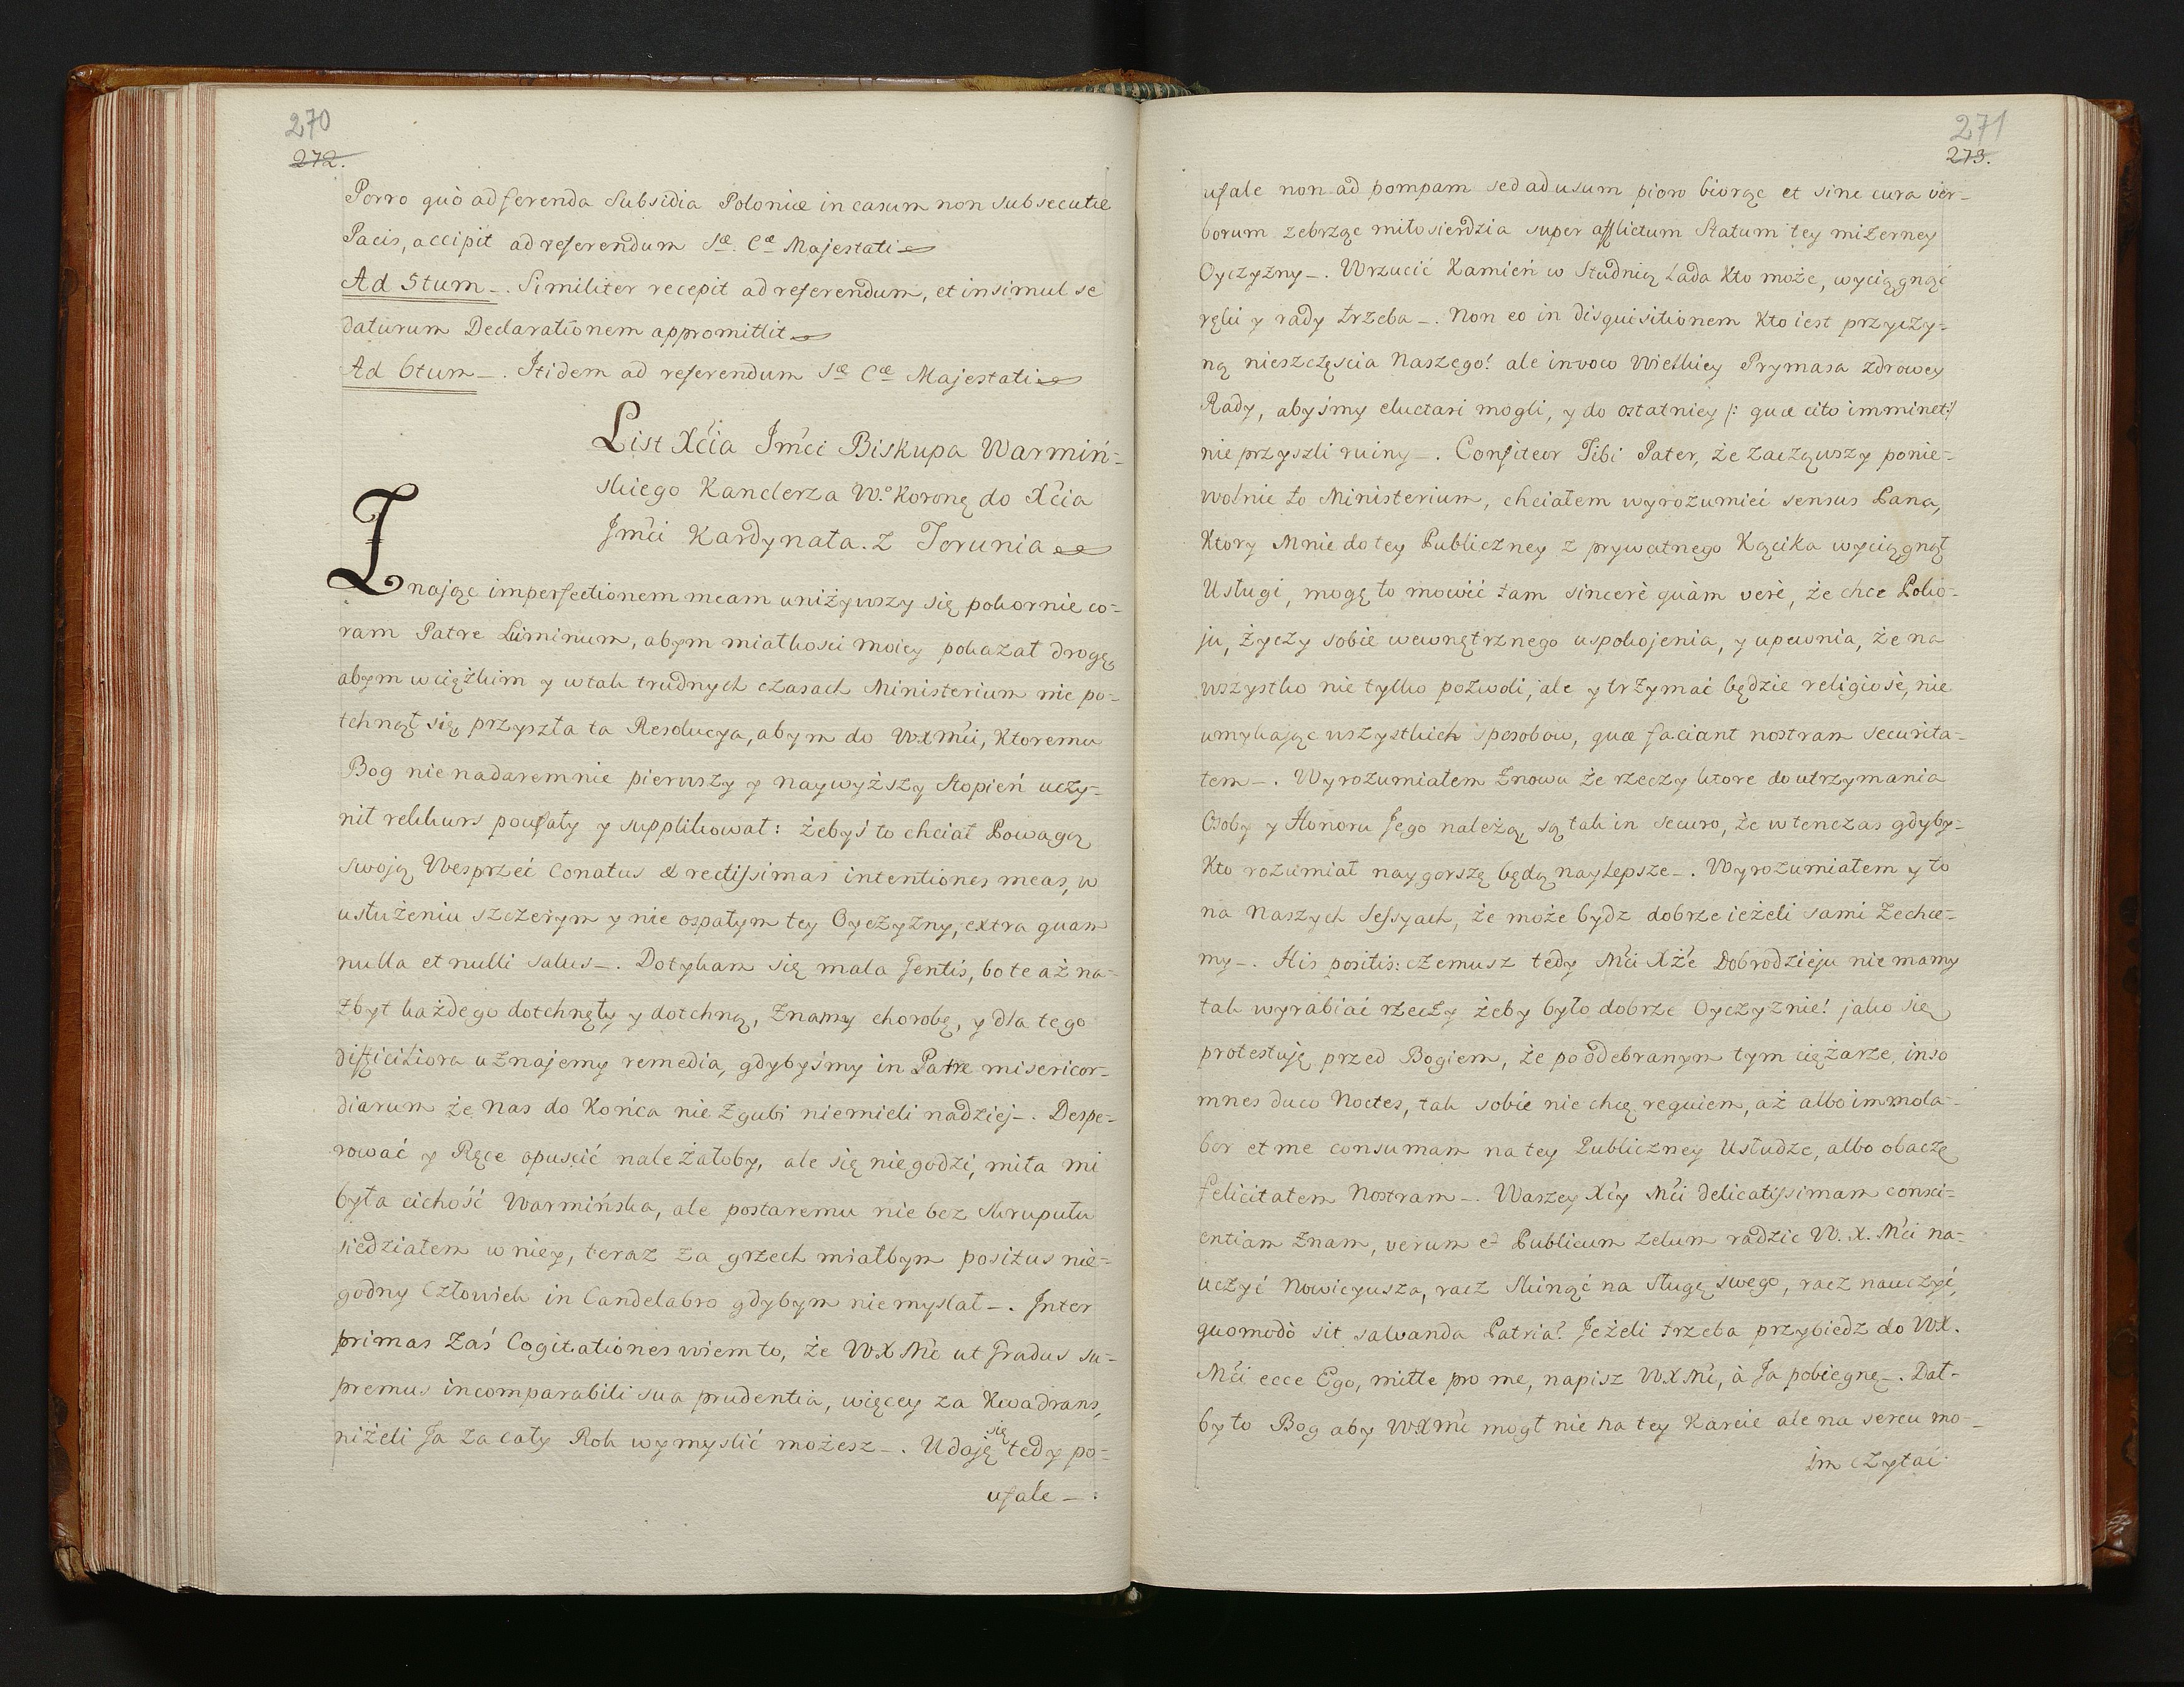 270
272.
Porro quò ad ferenda Subsidia Poloniæ in casum non subsecutæ
Pacis, accipit ad referendum Sæ Cæ Majestati
Ad 5tum _. Similiter recepit ad referendum, et insimul se
daturum Declarationem appromittit
Ad 6tum _. Itidem ad referendum Sæ Cæ Majestati
List Xcia Jmći Biskupa Warmiń-
skiego Kanclerza W.o Koronę do Xcia
Jmći Kardynała. z Torunia
Znając imperfectionem meam uniżywszy się pokornie co-
ram Patre Luminum, abym miałkosci moiey pokazał drogę,
abym w ciężkim y w tak trudnych czasach Ministerium nie po-
tchnął się, przyszła ta Resolucya, abym do WXMći, Ktoremu
Bog nie nadaremnie pierwszy y naywyższy Stopień uczy-
nił rekkurs poufały y supplikował: żebyś to chciał Powagą
swoją Wesprzeć Conatus & rectissimas intentiones meas, w
usłużeniu szczerym y nie ospałym tey Oyczyzny, extra quam
nulla et nulli salus _. Dotykam się mala Gentis, bo te aż na-
zbyt każdego dotchnęły y dotchną, Znamy chorobę, y dla tego
difficiliora uznajemy remedia, gdybyśmy in Patre misericor-
diarum że nas do Końca nie Zgubi niemieli nadziej _. Despe-
rować y Ręce opuscić należałoby, ale się nie godzi, miła mi
była cichość Warmińska, ale postaremu nie bez skrupułu
siedziałem w niey, teraz za grzech miałbym positus nie-
godny Człowiek in Candelabro gdybym nie myslał _. Inter
primas Zaś Cogitationes wiem to, że WX Mć ut Gradus su-
premus incomparabili sua prudentia, więcey za Kwadrans,
niżeli Ja za cały Rok wymyslić możesz _. Udaję się tedy po-
ufale _.
271
273.
ufale non ad pompam sed ad usum pioro biorąc et sine cura ver-
borum zebrząc miłosierdzia super afflictum Statum tey mizerney
Oyczyzny _. Wrzucić Kamień w Studnią Lada Kto może, wyciągnąć
ręki y rady trzeba _. Non eo in disquisitionem Kto iest przyczy-
ną nieszczęscia Naszego! ale invoco Wielkiey Prymasa zdrowey
Rady, abyśmy eluctari mogli, y do ostatniey /: quæ cito imminet:/
nie przyszli ruiny _. Confiteor Tibi Pater, że zacząwszy ponie-
wolnie to Ministerium, chciałem wyrozumieć sensus Pana,
Ktory Mnie do tey Publiczney z prywatnego Kącika wyciągnął
Usługi, mogę to mowić tam sincerè quàm verè, że chce Poko-
ju, życzy sobie wewnętrznego uspokojenia, y upewnia, że na
wszystko nie tylko pozwoli, ale y trzymać będzie religiosè, nie
umykając wszystkich sposobow, quæ faciant nostram securita-
tem _. Wyrozumiałem Znowu że rzeczy ktore do utrzymania
Osoby y Honoru Jego należą, są tak in securo, że w tenczas gdyby-
Kto rozumiał naygorszę będą naylepsze _. Wyrozumiałem y to
na Naszych Sessyach, że może bydz dobrze ieżeli sami Zechce-
my _. His positis: czemusz tedy Mći Xże Dobrodzieju nie mamy
tak wyrabiać rzeczy żeby było dobrze Oyczyznie! jako się
protestuję przed Bogiem, że po odebranym tym ciężarze, inso
mnes duco Noctes, tak sobie nie chcę requiem, aż albo immola-
bor et me consumam na tey Publiczney Usłudze, albo obaczę
felicitatem Nostram _. Waszey Xcy Mći delicatissimam consci-
entiam Znam, verum et Publicum zelum radzic W. X. Mći na-
uczyć Nowicyusza, racz Skinąć na Sługę swego, racz nauczyć,
quomodò sit salvanda Patria? Jeżeli trzeba przybiedz do WX.
Mći ecce Ego, mitte pro me, napisz WXMć, à Ja pobiegnę _. Dał-
by to Bog aby WXMć mogł nie na tey Karcie ale na sercu mo-
im czytać